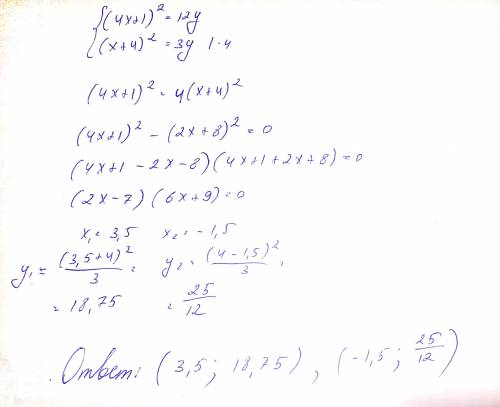 {(4x+1)² = 12y
{(x+4)² = 3y | · 4
(4x+1)² = 4(x+4)²
(4x+1)² - (2x+8)² = 0
(4x+1 - 2x - 8)(4x+1 + 2x + 8) = 0
(2x-7)(6x+9) = 0
x₁ = 3,5 x₂ = -1,5
y₁ = (3,5+4)²/3 = y₂ = (4-1,5)²/3 =
= 18,75 = 25/12
Ответ: (3,5; 18,75), (-1,5; 25/12)